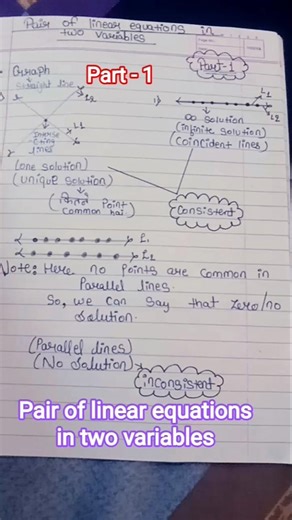 Pair of linear equations in
two variables
Part-1
Part - 1
Graph
Straight line
L1
L2
L1
L2
Interse
-cting
lines
∞ solution
(infinite solution)
(coincident lines)
(one solution)
(unique solution)
(कितने Point
Common hai)
Consistent
L1
L2
Note: Here no points are common in
Parallel lines.
So, we can say that zero/no
solution.
(Parallel lines)
(No Solution)
inconsistent
Pair of linear equations
in two variables